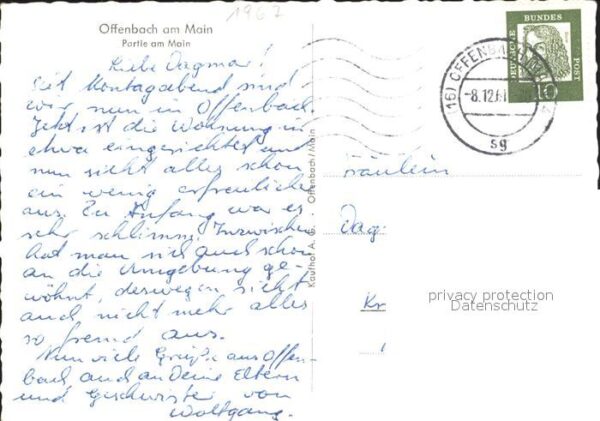 1967
Offenbach am Main
Partie am Main
Liebe Dagmar!
Seit Montagabend sind
wir nun in Offenbach.
Jetzt ist die Wohnung in
etwa eingerichtet und
nun sieht alles schon
ein wenig erfreulicher
aus. Zu Anfang war es
sehr schlimm. Inzwischen
hat man sich auch schon
an die Umgebung ge-
wöhnt, deswegen sieht
auch nicht mehr alles
so fremd aus.
Nun viele Grüße aus Offen-
bach auch an Deine Eltern
und Geschwister von
Wolfgang.
Kaufhof A. G. · Offenbach/Main
DEUTSCHE BUNDES POST
10
(16) OFFENBACH
-8.12.61
sg
Fräulein
Dag
Kr
privacy protection
Datenschutz